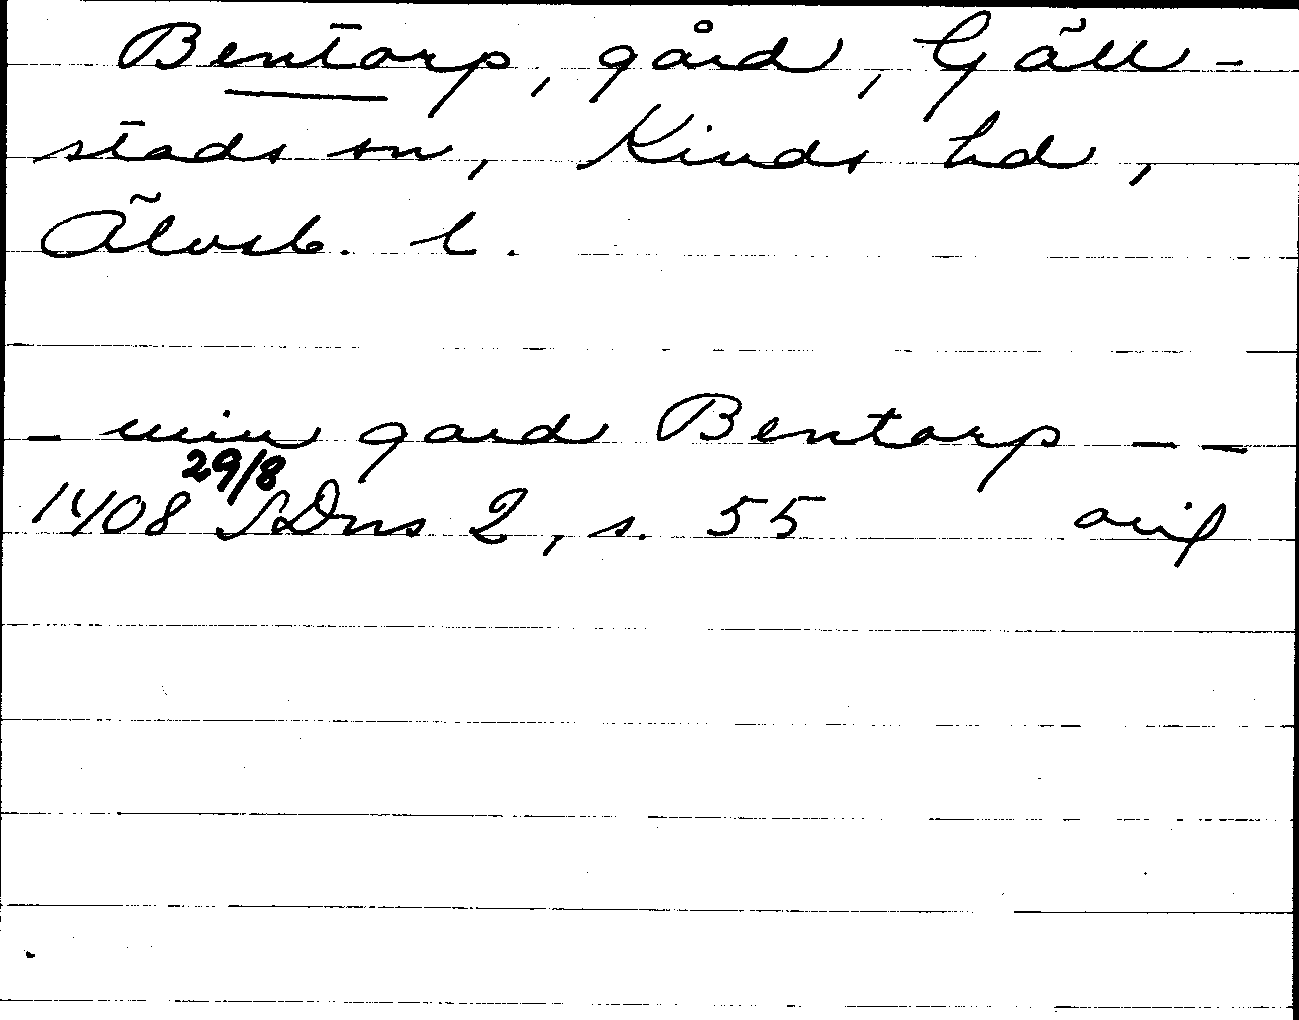 Bentorp, gård, Gäll-
stads sn, Kinds hd,
Älvsb. l.
- min gard Bentorp - -
29/8
1408 SDns 2, s. 55